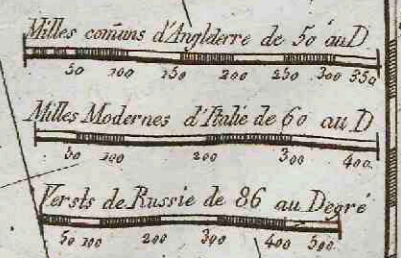 Milles comũns d'Anglderre de 50 au D
50 100 150 200 250 300 350
Milles Modernes d'Italie de 60 au D
50 100 200 300 400
Versts de Russie de 86 au Degré
50 100 200 300 400 500